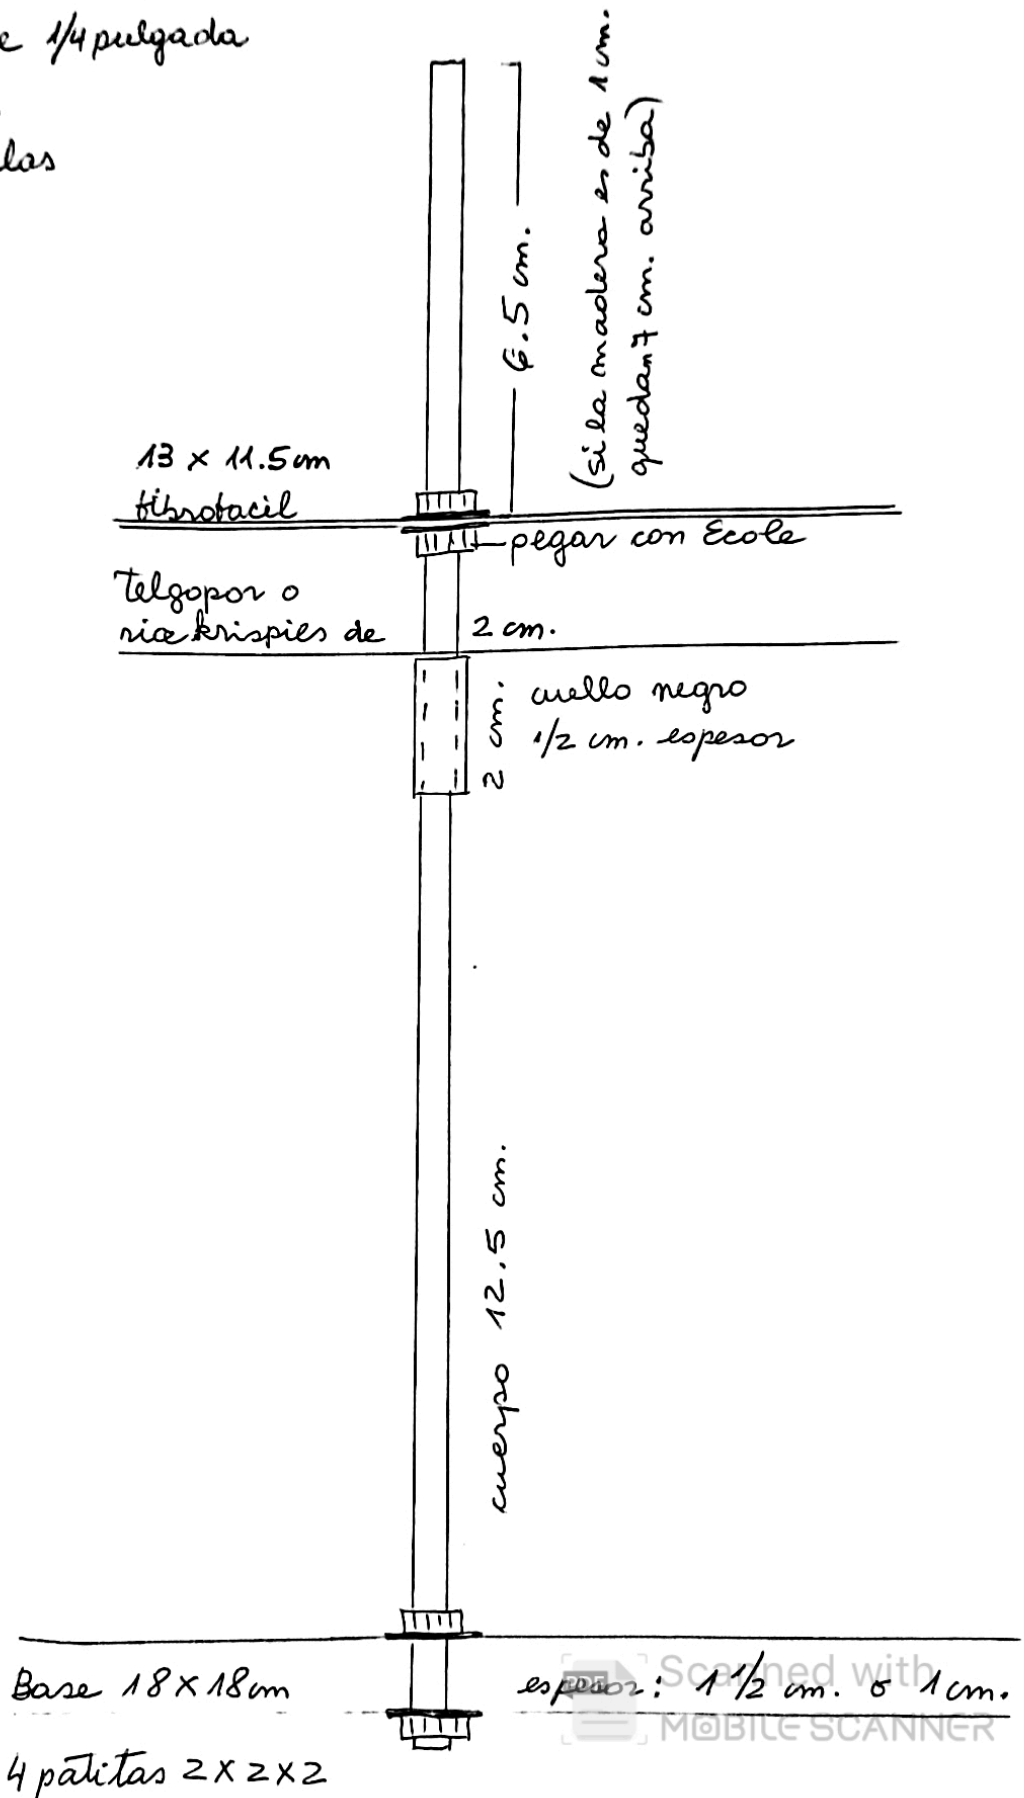 e 1/4 pulgada
las
6.5 cm.
(si la madera es de 1 cm.
quedan 7 cm. arriba)
13 x 11.5 cm
fibrofacil
pegar con Ecole
Telgopor o
rice krispies de 2 cm.
2 cm.
cuello negro
1/2 cm. espesor
cuerpo 12.5 cm.
Base 18 x 18 cm
espesor: 1 1/2 cm. o 1 cm.
4 patitas 2 x 2 x 2
PDF
Scanned with
MOBILE SCANNER